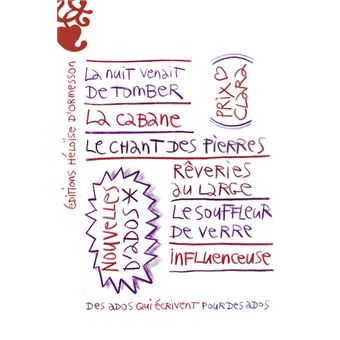 ÉDITIONS HÉLOÏSE D'ORMESSON
LA NUIT VENAIT
DE TOMBER
PRIX
CLARA
LA CABANE
LE CHANT DES PIERRES
RÊVERIES
AU LARGE
LE SOUFFLEUR
DE VERRE
INFLUENCEUSE
NOUVELLES
D'ADOS*
DES ADOS QUI ÉCRIVENT POUR DES ADOS